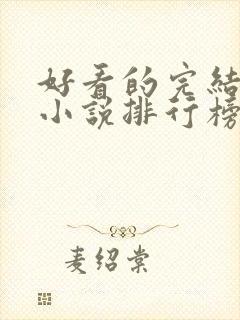 好看的完结
小说排行榜
麦绍棠